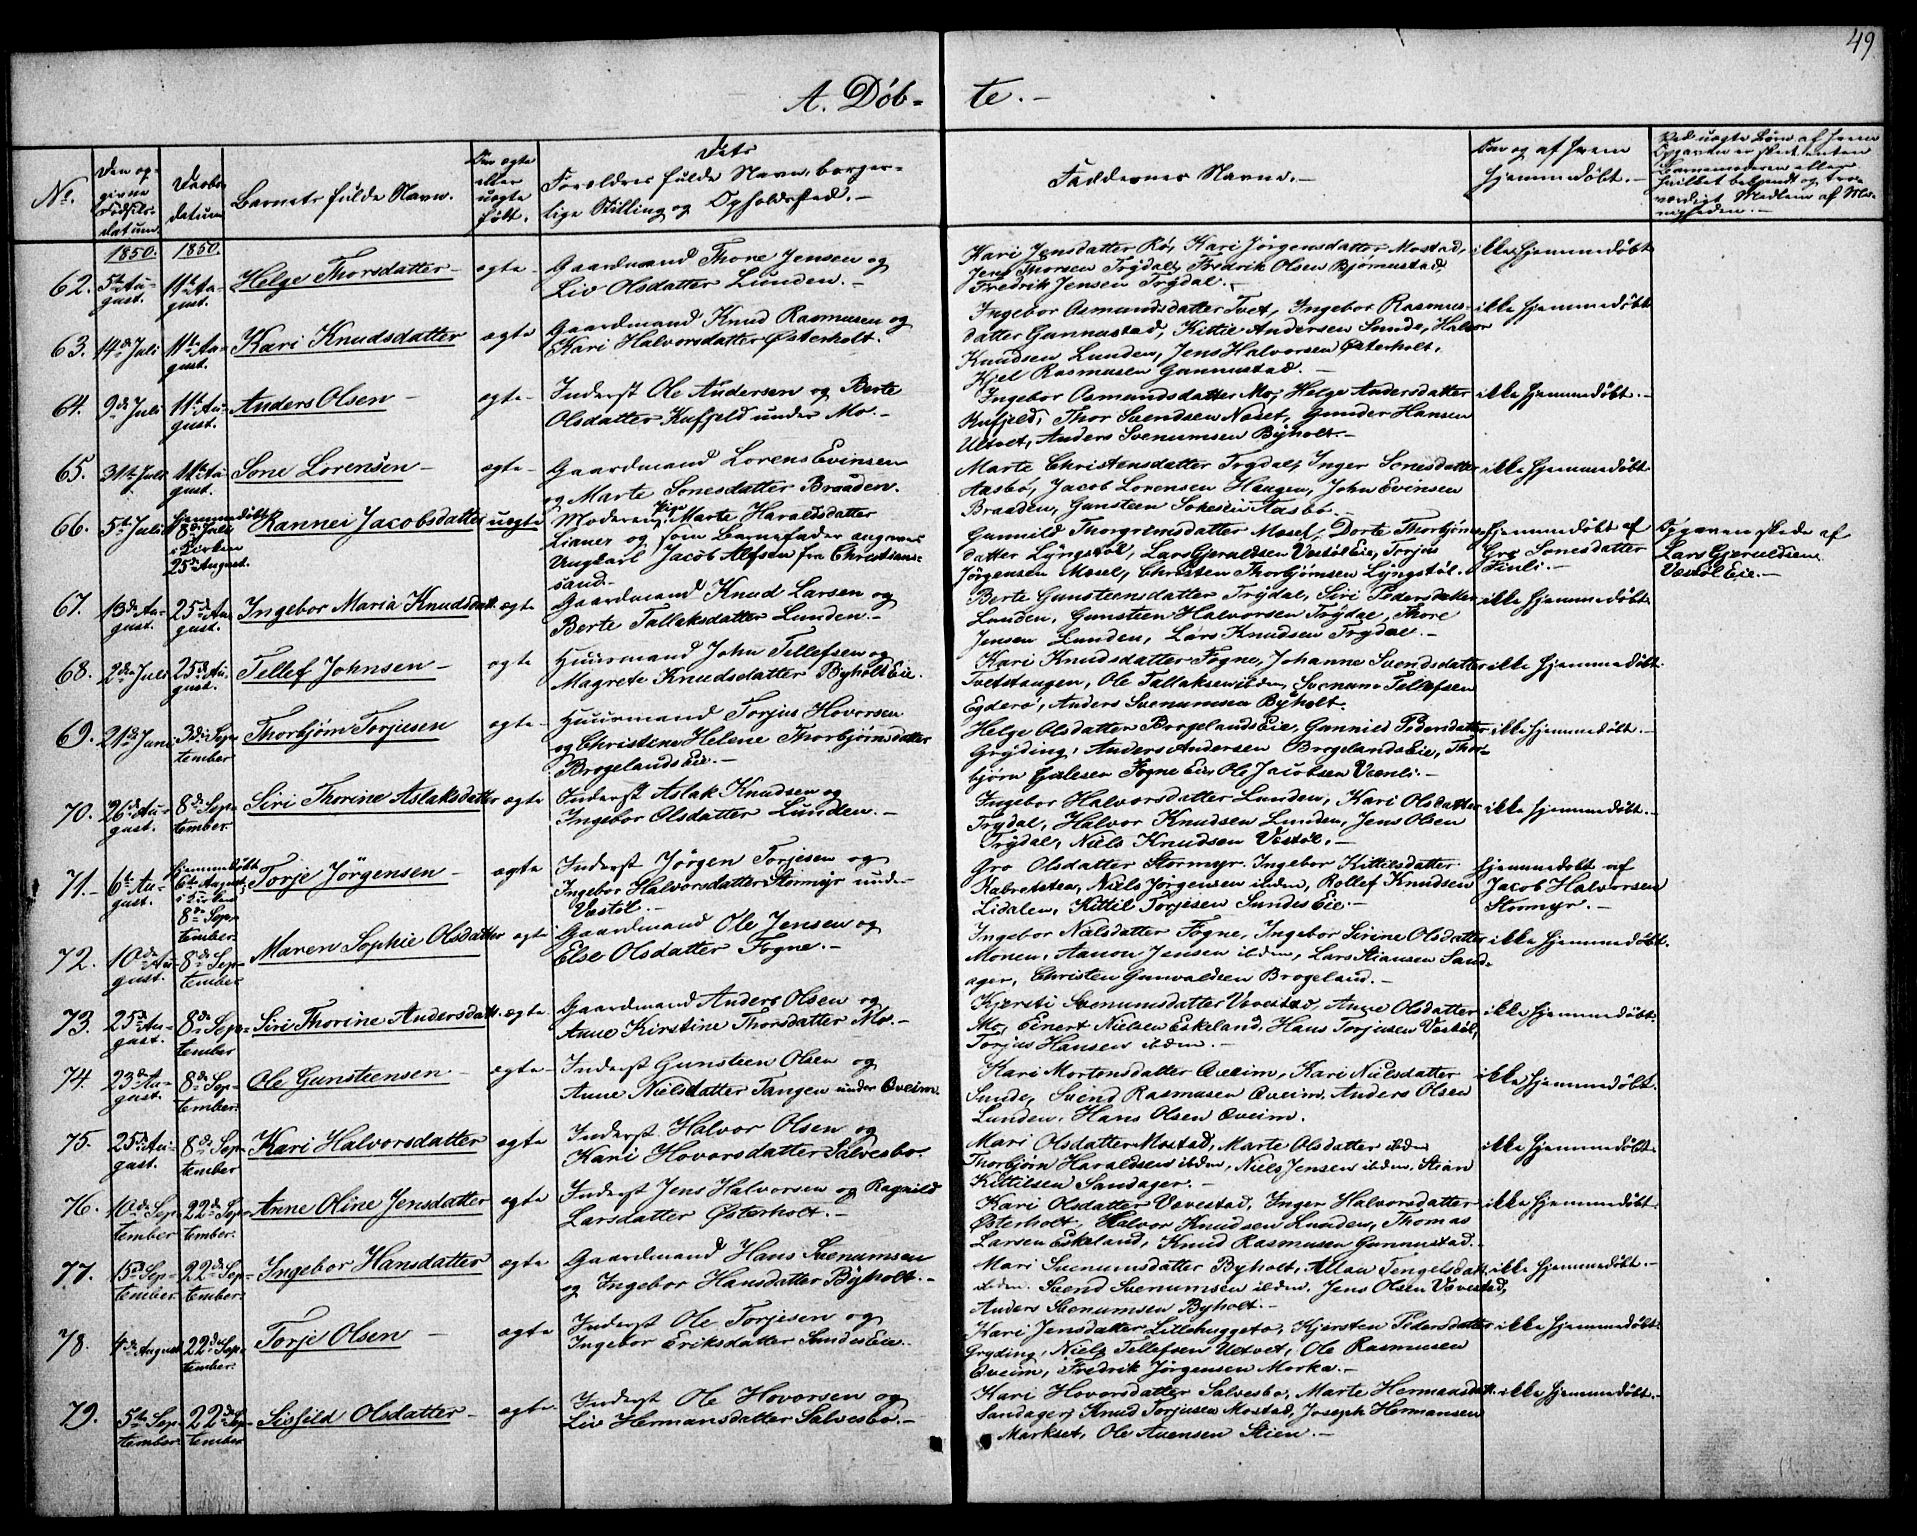 49
A. Döb- te.-
No.
Den op-
givne
Födsels-
datum.
Daabs-
datum
Barnets fulde Navn.
Om ægte
eller
uægte
født.
Dets
Forældres fulde Navn, borger-
lige Stilling og Opholdssted.-
Faddernes Navne.-
Om og af hvem
hjemmedøbt.-
1850. 1850.
62. 5te Au-
gust. 11te Au-
gust. Helge Thorsdatter- ægte- Gaardmand Thore Jensen og
Liv Olsdatter Lunden.-
Kari Jensdatter Rö, Kari Jörgensdatter Mostad,
Jens Thorsen Trydal, Fredrik Olsen Bjørnustad,
Fredrik Jensen Trydal.-
ikke hjemmedøbt
63. 14de Juli 11te Au-
gust. Kari Knudsdatter ægte Gaardmand Knud Rasmusen og
Kari Halvorsdatter Østerholt.
Ingebor Osmundsdatter Tvet, Ingebor Rasmus-
datter Gunnustad, Kittil Andersen Sunde, Halvor
Knudsen Lunden, Jens Halvorsen Østerholt,
Kjel Rasmusen Gunnustad.-
ikke hjemmedøbt
64. 9de Juli 11te Au-
gust. Anders Olsen- ægte- Inderst Ole Andersen og Berte
Olsdatter Kufjeld under Mo.-
Ingebor Osmundsdatter Mo, Helge Andersdatter
Kufjeld, Thor Svendsen Næset, Gunder Hansen
Uetvet, Anders Svenumsen Byholt.-
ikke hjemmedøbt.-
65. 31te Juli 11te Au-
gust. Sone Lorensen- ægte- Gaardmand Lorens Evinsen
og Marte Sonesdatter Braaden.
Marte Christensdatter Trydal, Inger Sonesdatter
Aasbö, Jacob Lorensen Haugen, John Evinsen
Braaden, Gunsteen Sonesen Aasbö.-
ikke hjemmedøbt
66. 5te Juli hjemmedøbt
8de Juli
i Kirken
25de August. Rannei Jacobsdatter uægte Moderen Pige Marte Haraldsdatter
Lianes og som Barnefader angives
Ungkarl Jacob Alfsen fra Christian-
sand.-
Gunnild Thorgrimsdatter Mosel, Dorte Thorbjörns-
datter Lyngstöl, Lars Gjeruldsen Vestöl Eie, Torjus
Jörgensen Mosel, Christen Thorbjørnsen Lyngstöl.
hjemmedøbt af
Gro Sonesdatter
Finli.-
Opgaven skede af
Lars Gjeruldsen
Vestöl Eie.-
67. 13de Au-
gust. 25de Au-
gust. Ingebor Maria Knudsdatt. ægte Gaardmand Knud Larsen og
Berte Tallaksdatter Lunden.-
Berte Gunsteensdatter Trydal, Siri Pedersdatter
Lunden, Gunsteen Halvorsen Trydal, Thore
Jensen Lunden, Lars Knudsen Trydal.-
ikke hjemmedøbt
68. 2den Juli 25de Au-
gust. Tellef Johnsen- ægte Huusmand John Tellefsen og
Magrete Knudsdatter Byholt Eie.
Kari Knudsdatter Fogne, Johanne Svendsdatter
Tvetstangen, Ole Tallaksen ibidem, Svenum Tellefsen
Egderö, Anders Svenumsen Byholt.-
ikke hjemmedøbt.
69. 21de Juni 3de Sep-
tember Thorbjørn Torjesen ægte- Huusmand Torjus Hovorsen
og Christine Helene Thorbjørnsdatter
Brogelands Eie.-
Helge Olsdatter Brogelands Eie, Gunnild Pedersdatter
Gryding, Anders Andersen Brogelands Eie, Thor-
bjørn Fogne Eie, Ole Jacobsen Veenli.-
ikke hjemmedøbt.-
70. 26de Au-
gust. 8de Sep-
tember. Siri Thorine Aslaksdatter ægte Inderst Aslak Knudsen og
Ingebor Olsdatter Lunden.-
Ingebor Halvorsdatter Lunden, Kari Olsdatter
Trydal, Halvor Knudsen Lunden, Jens Olsen
Trydal, Niels Knudsen Vestöl.-
ikke hjemmedøbt.-
71.- 6te Au-
gust. hjemmedøbt
6te August,
i Kirken
8de Sep-
tember. Torje Jörgensen- ægte Inderst Jörgen Torjesen og
Ingebor Halvorsdatter Stormyr under
Vestöl.-
Gro Olsdatter Stormyr, Ingebor Kittilsdatter
Niels Jörgensen ibidem, Rollef Knudsen
Lidalen, Kittil Torjesen Sundes Eie.-
hjemmedøbt af
Jacob Halvorsen
Stormyr.-
72. 10de Au-
gust. 8de Sep-
tember. Maren Sophie Olsdatter ægte Gaardmand Ole Jensen og
Else Olsdatter Fogne.-
Ingebor Nielsdatter Fogne, Ingebor Sirine Olsdatter
Monen, Aanon Jensen ibidem, Lars Stiansen Sand-
ager, Christen Gunvaldsen Brogeland.-
ikke hjemmedøbt.
73. 25de Au-
gust. 8de Sep-
tember Siri Thorine Andersdatt. ægte. Gaardmand Anders Olsen og
Anne Kirstine Thorsdatter Mo.-
Kjersti Svenumsdatter Vevestad, Anne Olsdatter
Mo, Einert Nielsen Eskeland, Hans Torjusen Vestöl,
Torjus Hansen ibidem.-
ikke hjemmedøbt.
74. 23de Au-
gust. 8de Sep-
tember. Ole Gunstensen- ægte- Inderst Gunsteen Olsen og
Anne Nielsdatter Tangen under Qveim.
Kari Mortensdatter Qveim, Kari Nielsdatter
Sunde, Svend Rasmusen Qveim, Anders Olsen
Lunden, Hans Olsen Qveim.
ikke hjemmedøbt.
75. 25de Au-
gust. 8de Sep-
tember Kari Halvorsdatter ægte Inderst Halvor Olsen og
Kari Hovorsdatter Salvesbo.
Mari Olsdatter Mostad, Marte Olsdatter ibidem
Thorbjørn Haraldsen ibidem, Niels Jensen ibidem, Stian
Kittilsen Sandager.-
ikke hjemmedøbt.
76. 10de Sep-
tember 22de Sep-
tember. Anne Oline Jensdatter ægte Inderst Jens Halvorsen og Ragnild
Larsdatter Østerholt.-
Kari Olsdatter Vevestad, Inger Halvorsdatter
Østerholt, Halvor Knudsen Lunden, Thomas
Larsen Eskeland, Knud Rasmusen Gunnustad.-
ikke hjemmedøbt.
77. 15de Sep-
tember 22de Sep-
tember. Ingebor Hansdatter ægte Gaardmand Hans Svenumsen
og Ingebor Hansdatter Byholt.-
Mari Svenumsdatter Byholt, Tengelsdatt.
ibidem. Svend Svenumsen ibidem, Jens Olsen Vevestad,
Anders Svenumsen Byholt.-
ikke hjemmedøbt.-
78. 4de August 22de Sep-
tember. Torje Olsen- ægte Inderst Ole Torjesen og
Ingebor Eriksdatter Sundes Eie.
Kari Jensdatter Lillehuggeto, Kjersten Pedersdatter
Gryding, Niels Tellefsen Uetvet, Ole Rasmusen
Qveim, Fredrik Jörgensen Morka.-
ikke hjemmedøbt.
79. 5te Sep-
tember. 22de Sep-
tember Sisfeld Olsdatter- ægte Inderst Ole Hovorsen og
Liv Hermansdatter Salvesbo.-
Kari Hovorsdatter Salvesbo, Marte Hermansdatt.
Sandager, Knud Torjusen Mostad, Joseph Hermansen
Markset, Ole Avensen Stien.-
ikke hjemmedøbt.-